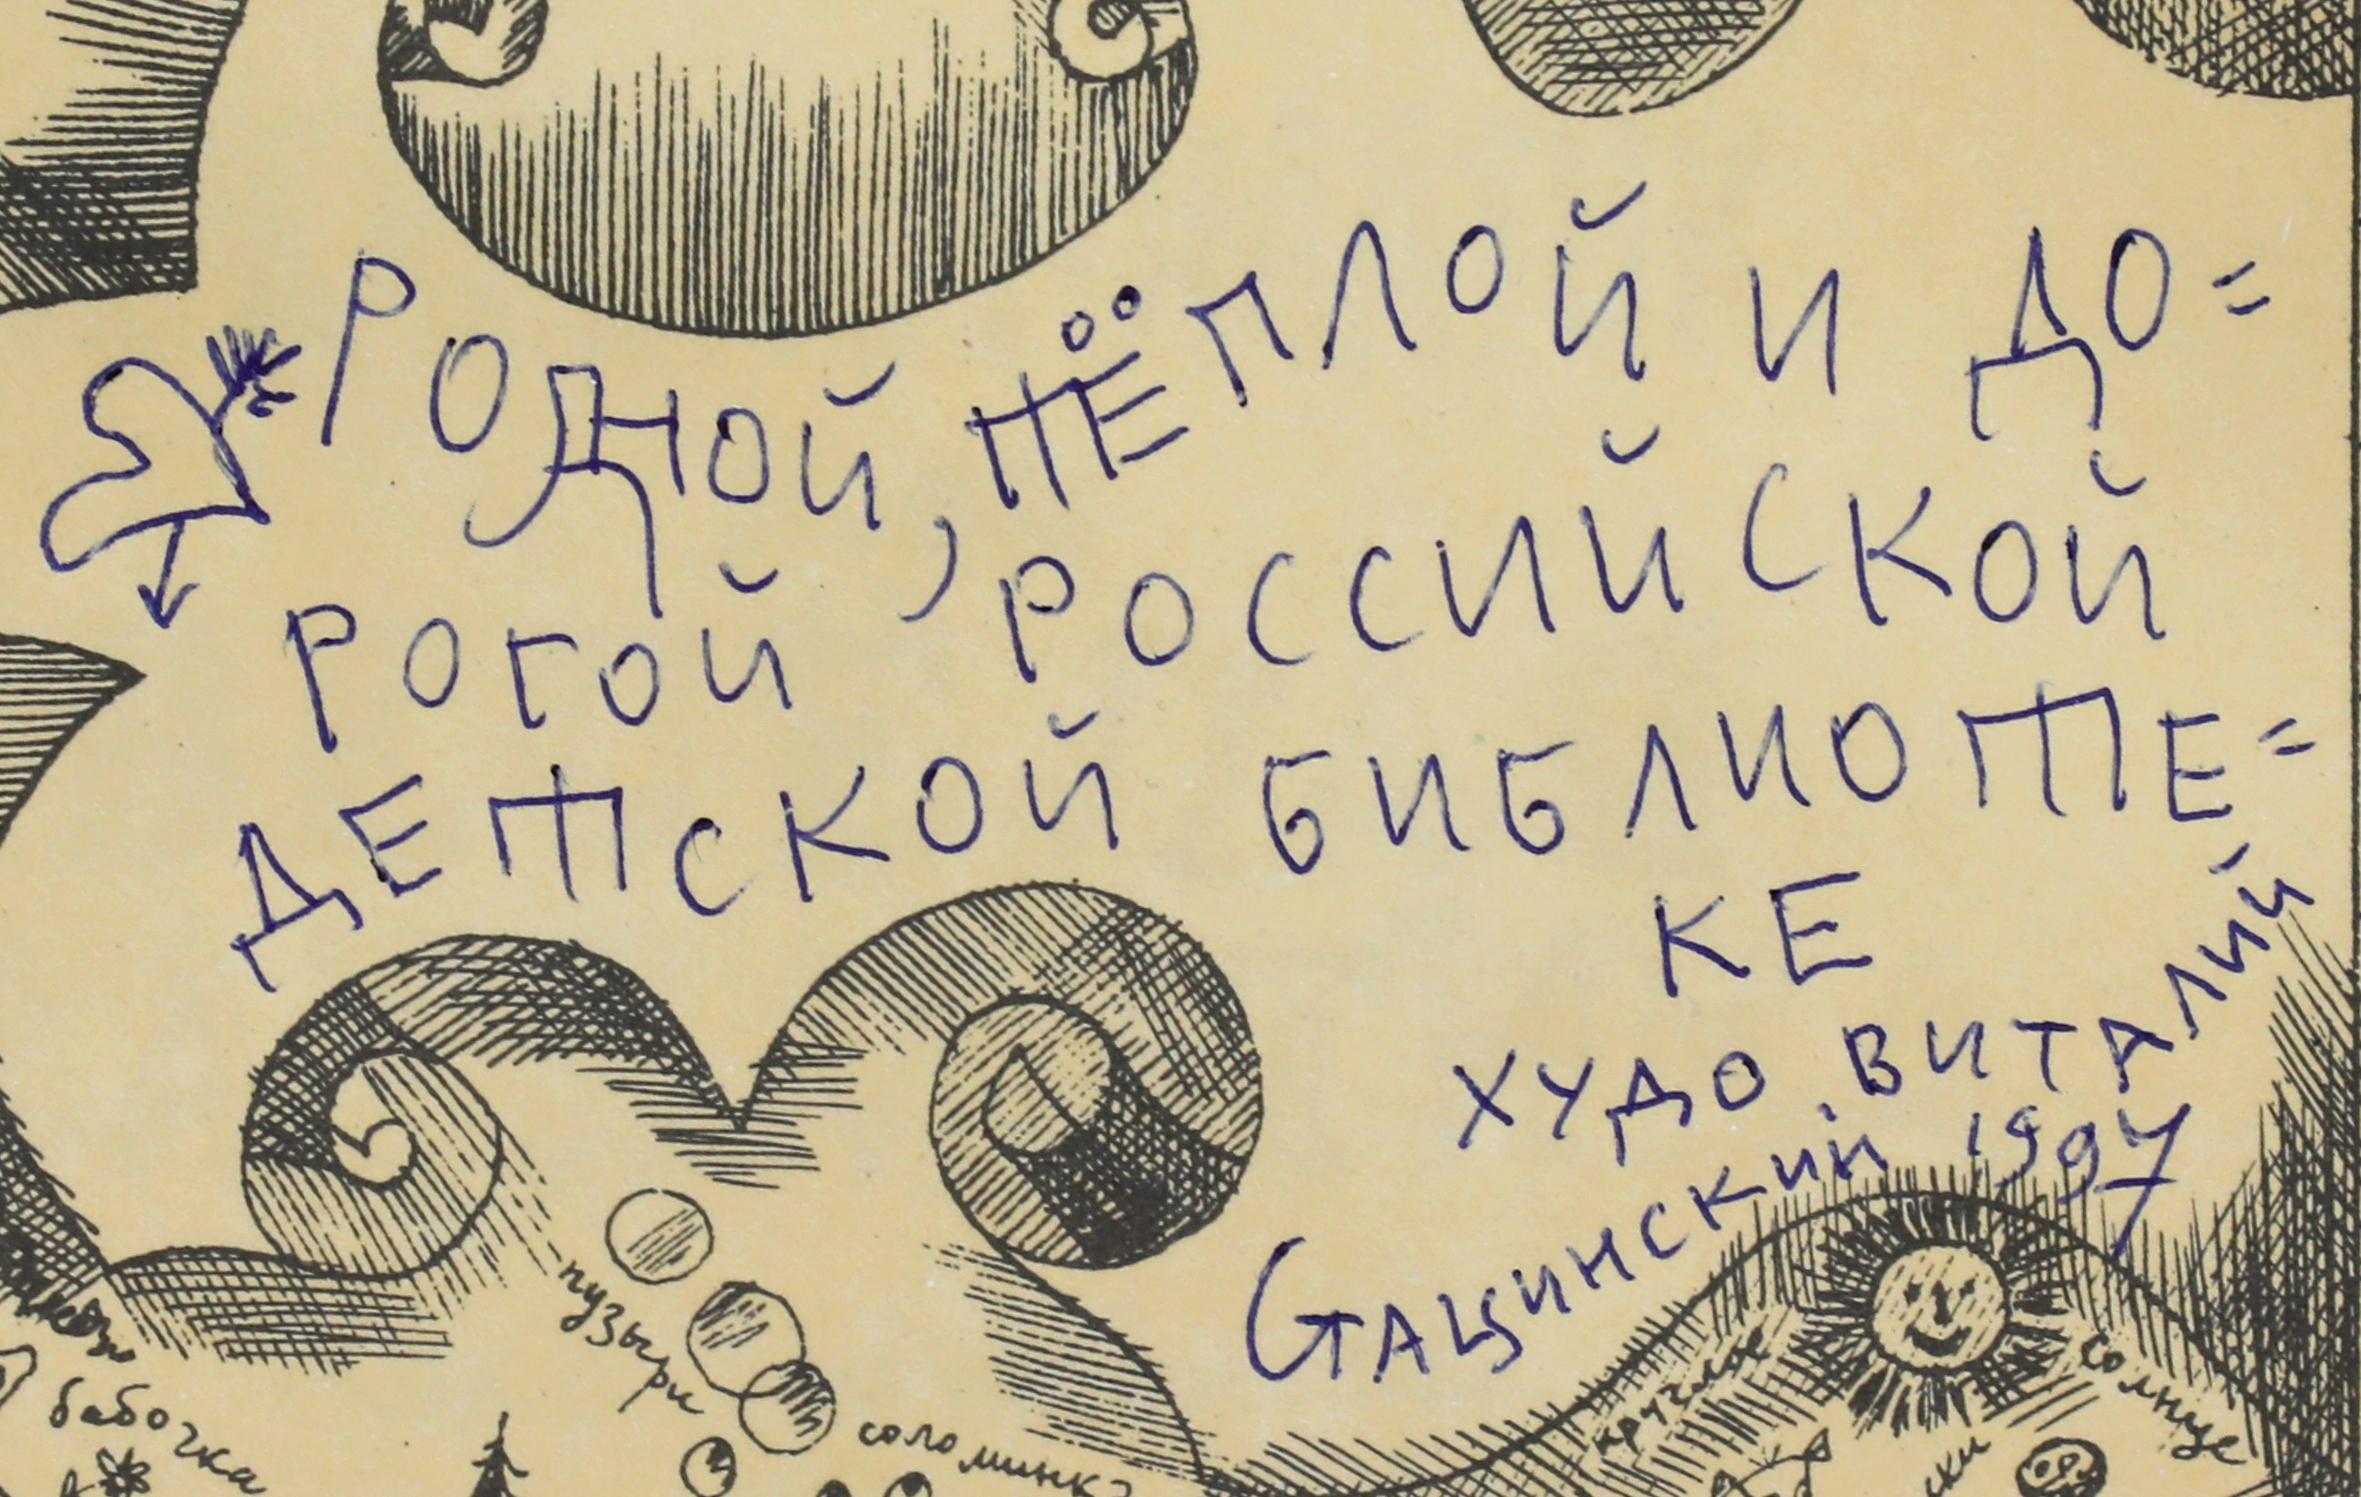 РОДНОЙ, ТЁПЛОЙ И ДО=
РОГОЙ РОССИЙСКОЙ
ДЕТСКОЙ БИБЛИОТЕ=
КЕ
ХУДО. ВИТАЛИЙ
СТАЦИНСКИЙ 1997
пузыри
бабочка
соломинка
круглое
солнце